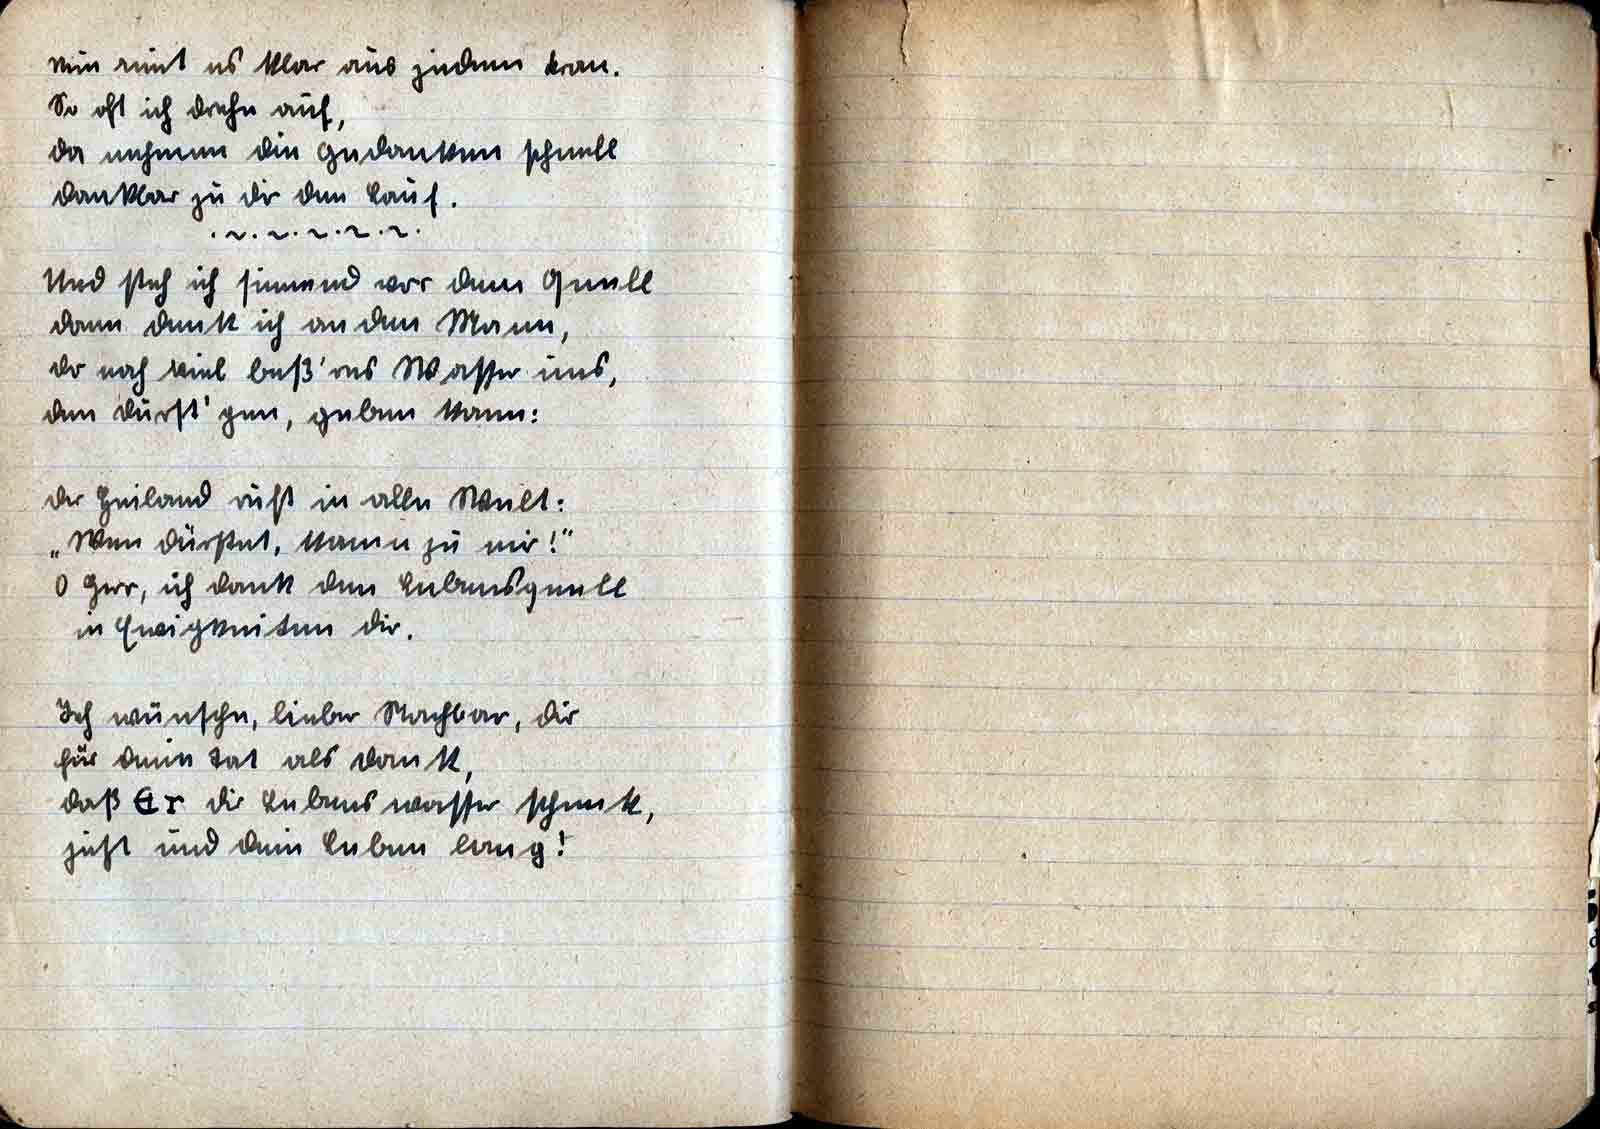 Nun rinnt es klar aus jedem Kran.
So oft ich drehe auf,
da nehmen die Gedanken schnell
dankbar zu dir den Lauf.
Und steh ich sinnend vor dem Quell
dann denk ich an den Mann,
der noch viel bess'res Wasser uns,
den durst'gen, geben kann:
der Heiland ruft in alle Welt:
„Wen dürstet, komm zu mir!“
O Herr, ich dank den Lebensquell
in Ewigkeiten dir.
Ich wünsche, lieber Nachbar, dir
für deine Tat als Dank,
daß Er dir Lebenswasser schenk,
jetzt und dein Leben lang!